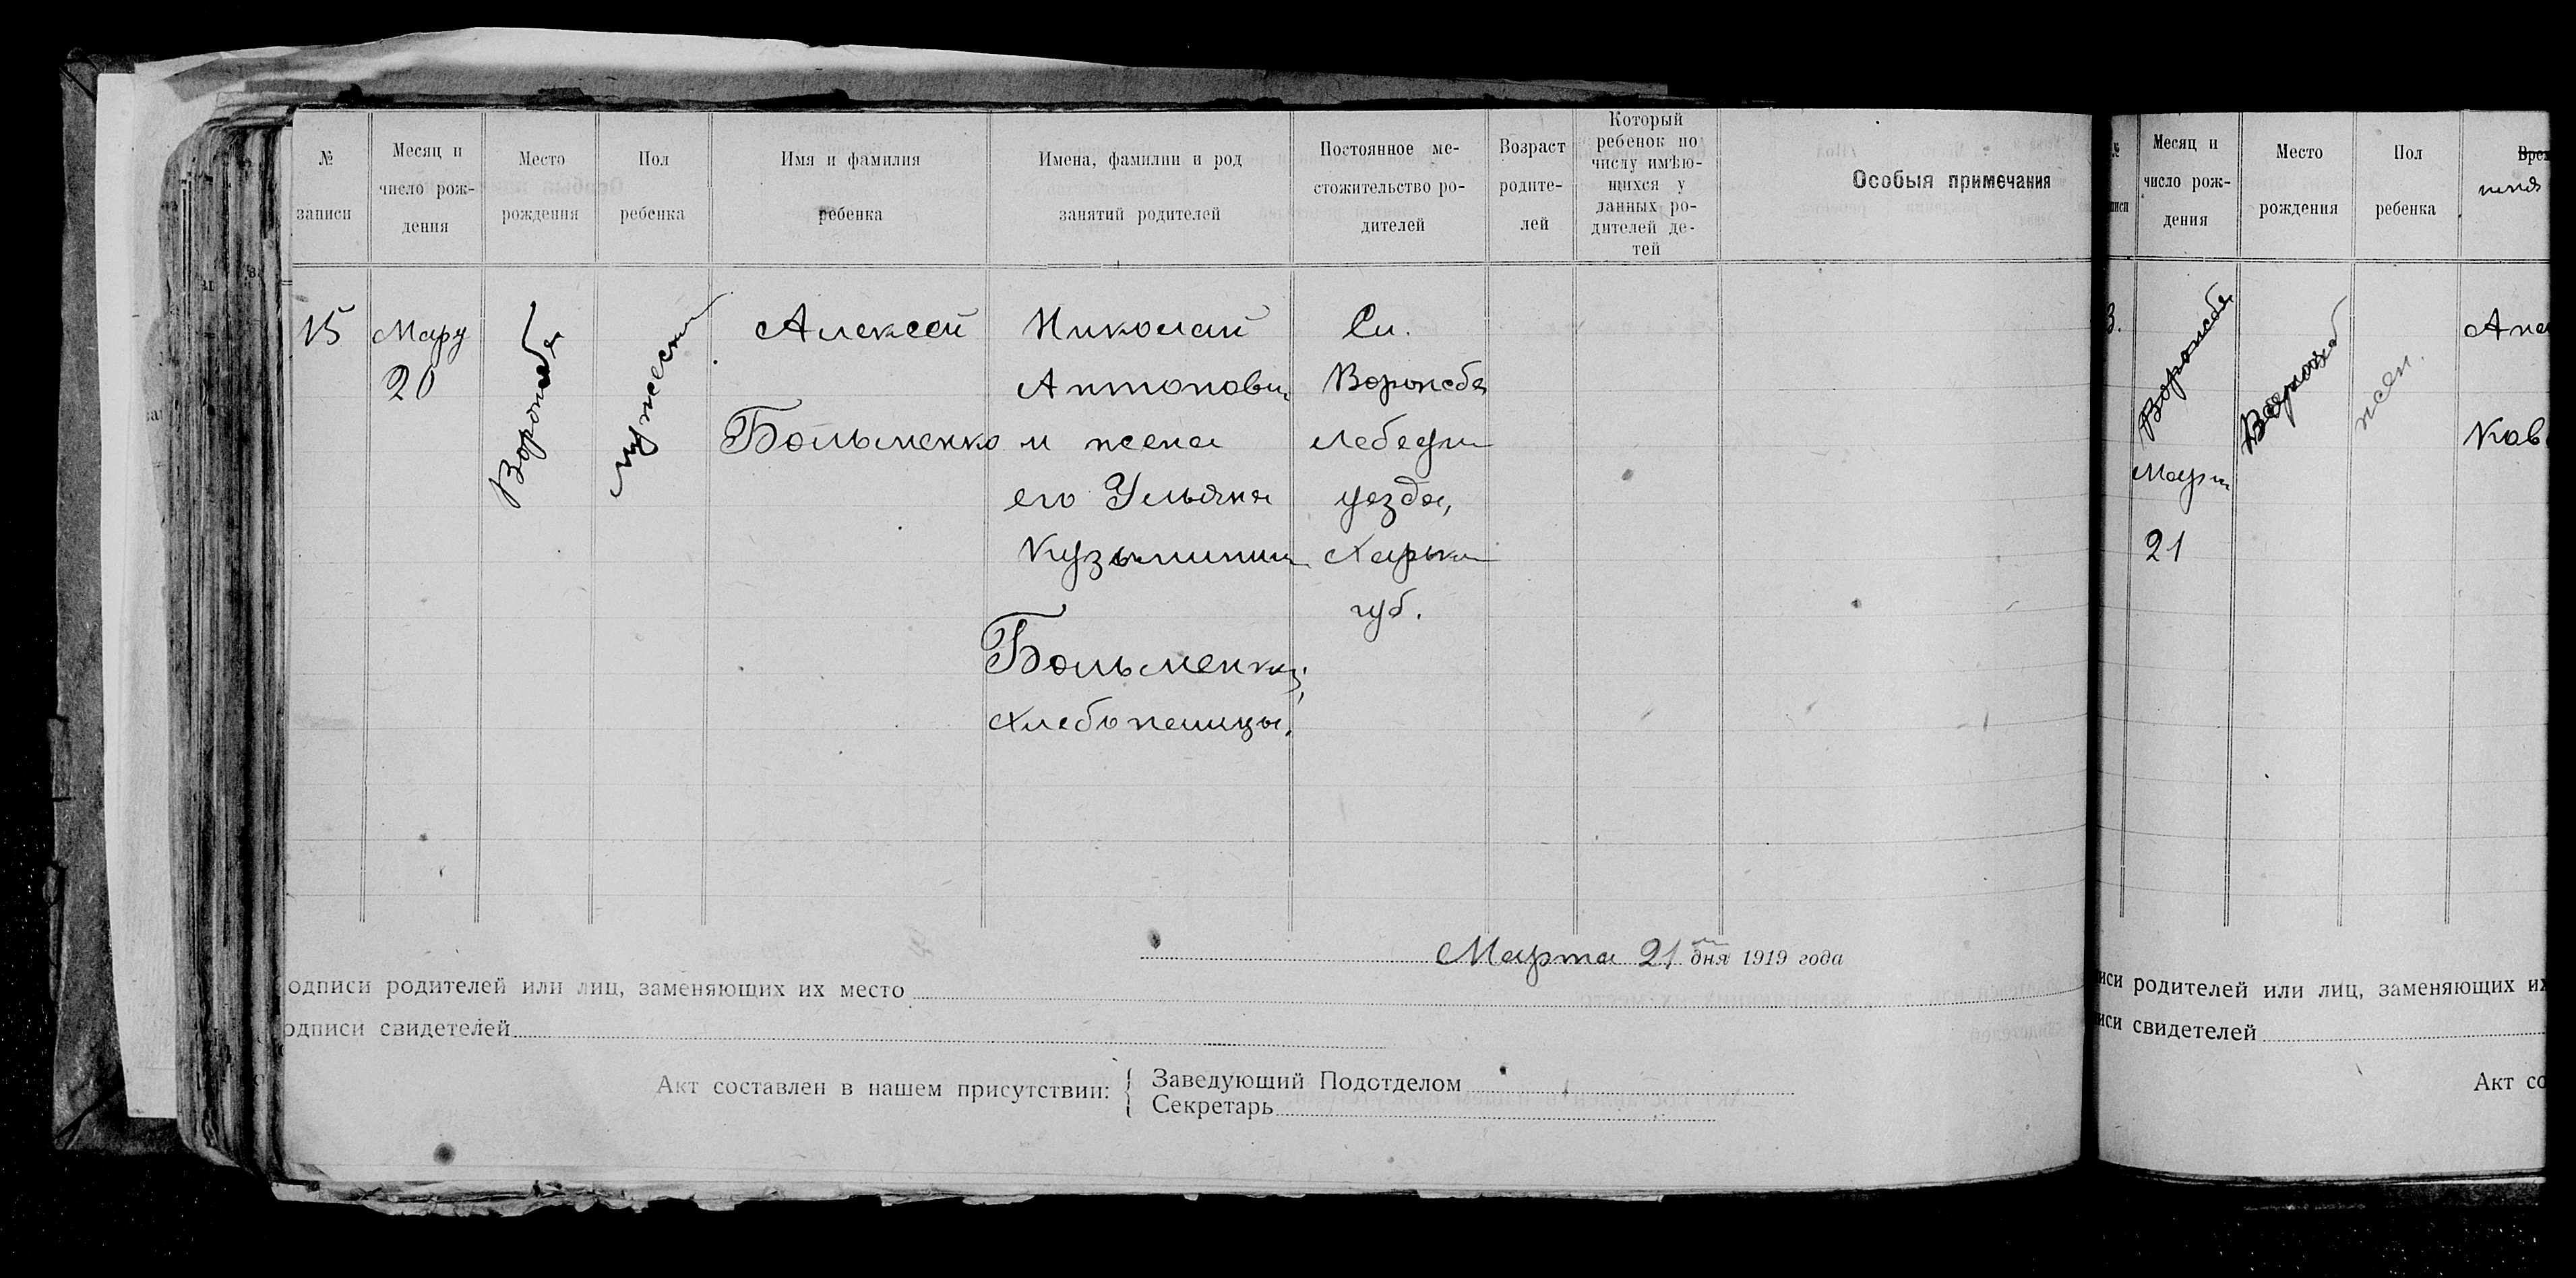 № записи
Месяц и число рождения
Место рождения
Пол ребенка
Имя и фамилия ребенка
Имена, фамилии и род занятий родителей
Постоянное ме-
стожительство ро-
дителей
Возраст
родите-
лей
Который
ребенок по
числу имѣю-
щихся у
данных ро-
дителей де-
тей
Особыя примечания
15
Мару
20
Воронеба
мужеский
Алексей
Больменко
Николай
Антонови
и жена
его Ульяна
Кузьминиш
Больменки,
хлебопашцы.
Сл.
Воронеба
Лебедин
уезда,
Харьк
губ.
Марта 21 дня 1919 года
одписи родителей или лиц, заменяющих их место
одписи свидетелей
Акт составлен в нашем присутствии:
Заведующий Подотделом
Секретарь
№
писи
Месяц и
число рож-
дения
Место
рождения
Пол
ребенка
Вре
3.
Воронеба
Март
21
жен.
Ков
писи родителей или лиц, заменяющих их
писи свидетелей
Акт со